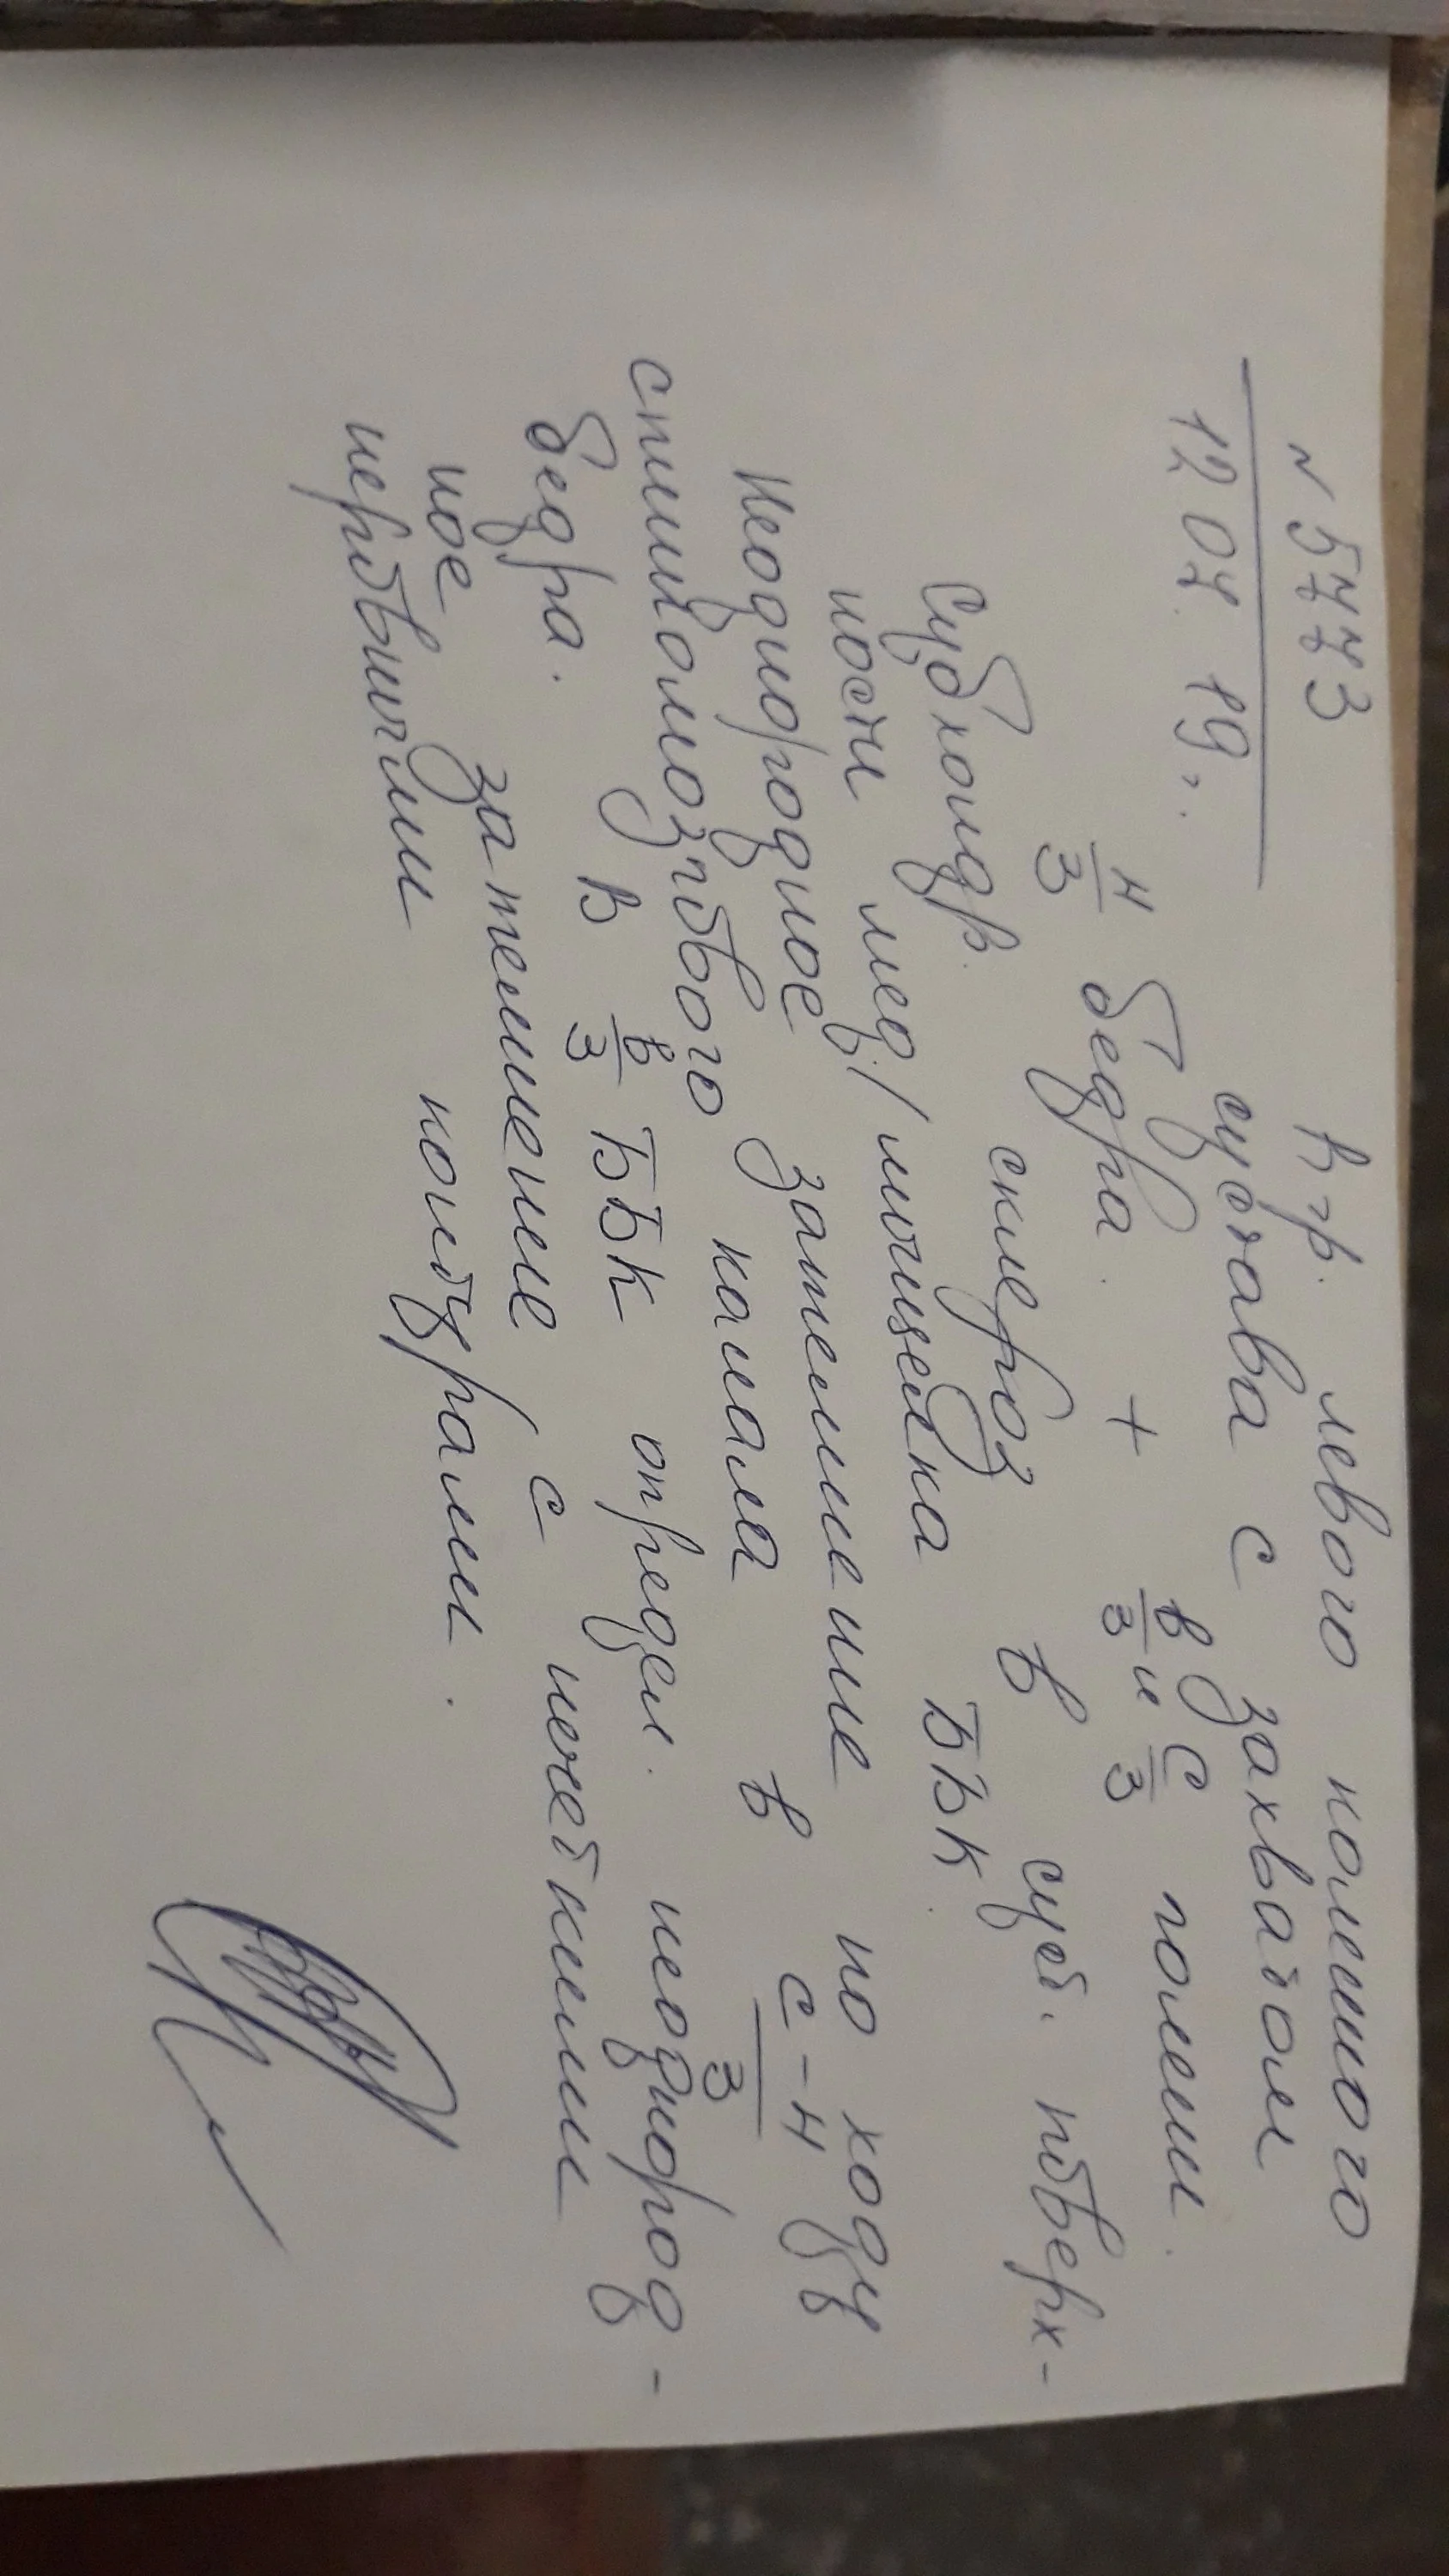 N 5773
12 07. 19г.
R-гр. левого коленного
сустава с захватом
н/3 бедра. + в/3 и с/3 голени.
Субхондр. склероз в суст. поверх-
ности мед/мыщелка ББК.
Неоднородное затемнение по ходу
спинномозгового канала в с-н/3
бедра. В в/3 ББК определ. неоднород-
ное затемнение с нечеткими
неровными контурами.